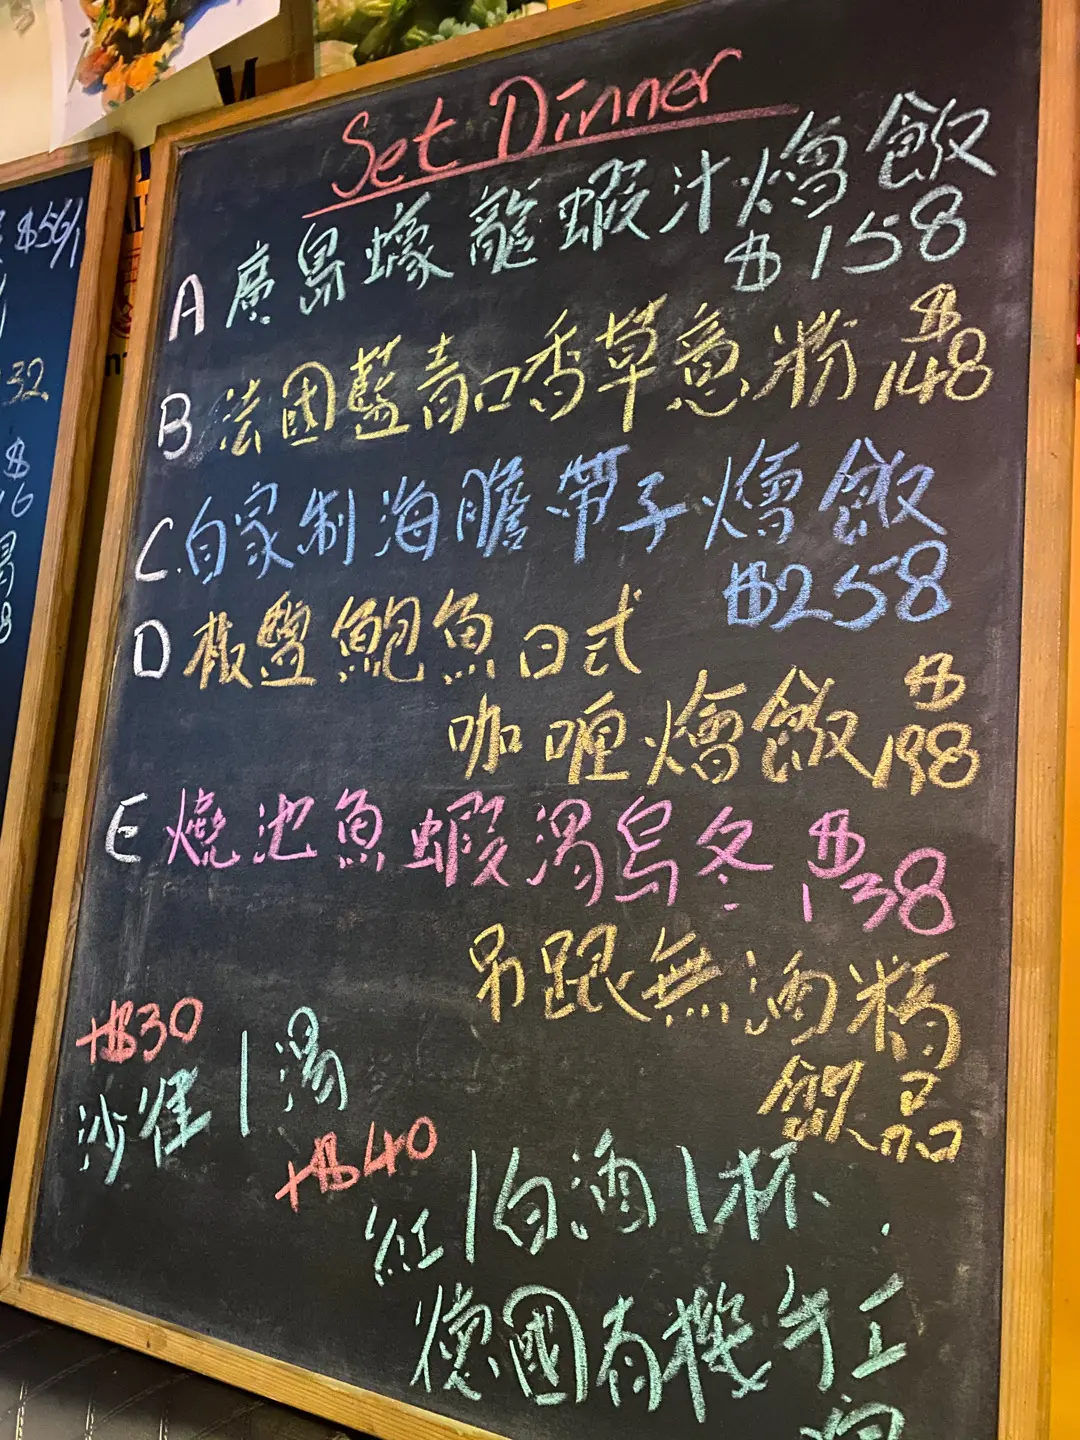 Set Dinner
A 廣島蠔龍蝦汁燴飯
$158
B 法國藍青口香草意粉 $148
C 自家制海膽帶子燴飯
$258
D 板鹽鮑魚日式
咖喱燴飯 $198
E 燒池魚蝦湯烏冬 $138
吊跟無酒精
飲品
+$30
沙律/湯
+$40
紅/白酒/杯
德國有機
$56/
32
$
8